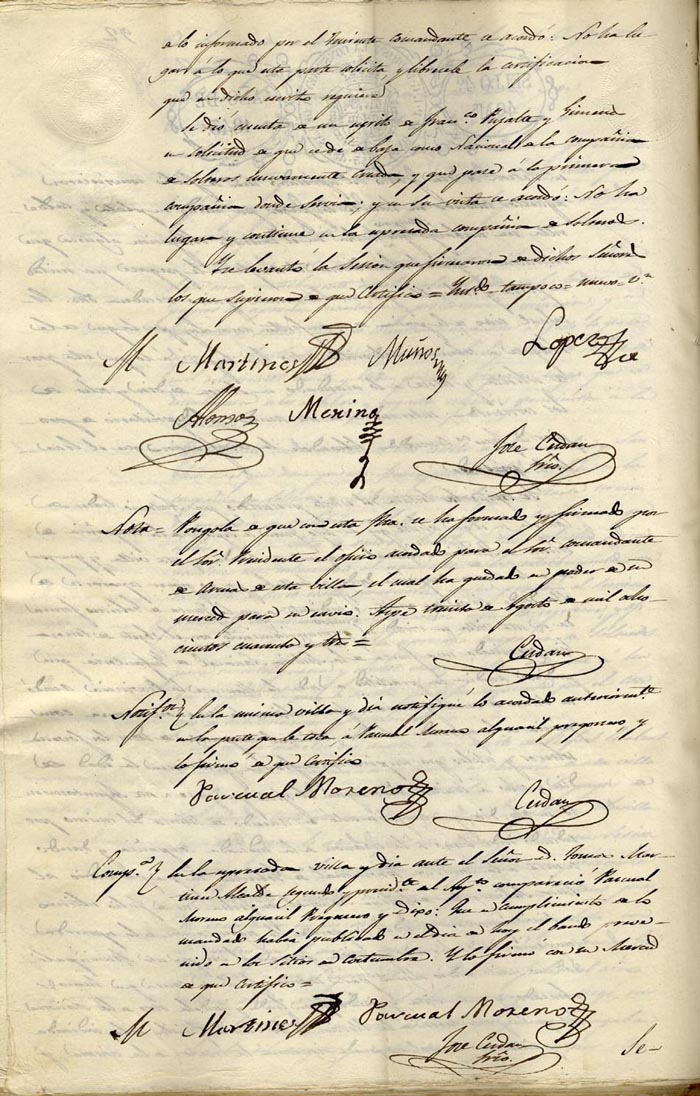 a lo informado por el Teniente comandante se acordó: No ha lu-
gar á lo que esta parte solicita y librese le la certificacion
que en dicho escrito requiere
Se dió cuenta de un escrito de Fran.co y Gimeno
en solicitud de que se dé de baja como Nacional de la compañia
de solteros nuevamente creada, y que pase á la primera
compañia donde servia: y en su vista se acordó: No ha
lugar y continue en la expresada compañia de solteros.
Y se levantó la Sesion que firmaron de dichos Señores
los que supieron de que Certifico = = tampoco = nuevo =
M Martines Muños Lopez
Alonso Merino
Jose Cerdan
Srio.
Nota = Pongola de que con esta fha. se ha formado y firmado por
el Sor. Presidente el oficio acordado para el Sor. Comandante
de Armas de esta Villa, el cual ha quedado en poder de su
merced para su envio. Aspe treinta de Agosto de mil ocho
cientos cuarenta y tres =
Cerdan
Notif.on } En la misma villa y dia notifiqué lo acordado anteriorm.te
en la parte que le toca á Pascual Moreno alguacil pregonero, y
lo firmó de que certifico
Pascual Moreno Cerdan
Comp.a } En la expresada villa y dia ante el Señor D. Tomas Mar-
tines Alcalde segundo y presid.te del Ay.to compareció Pascual
Moreno alguacil Pregonero y Dixo: Que en cumplimiento de lo
mandado habia publicado en el dia de hoy el bando preve-
nido en los Sitios de costumbre. Y lo firmó con su Merced
de que certifico =
M Martines Pascual Moreno
Jose Cerdan
Srio.
Se-